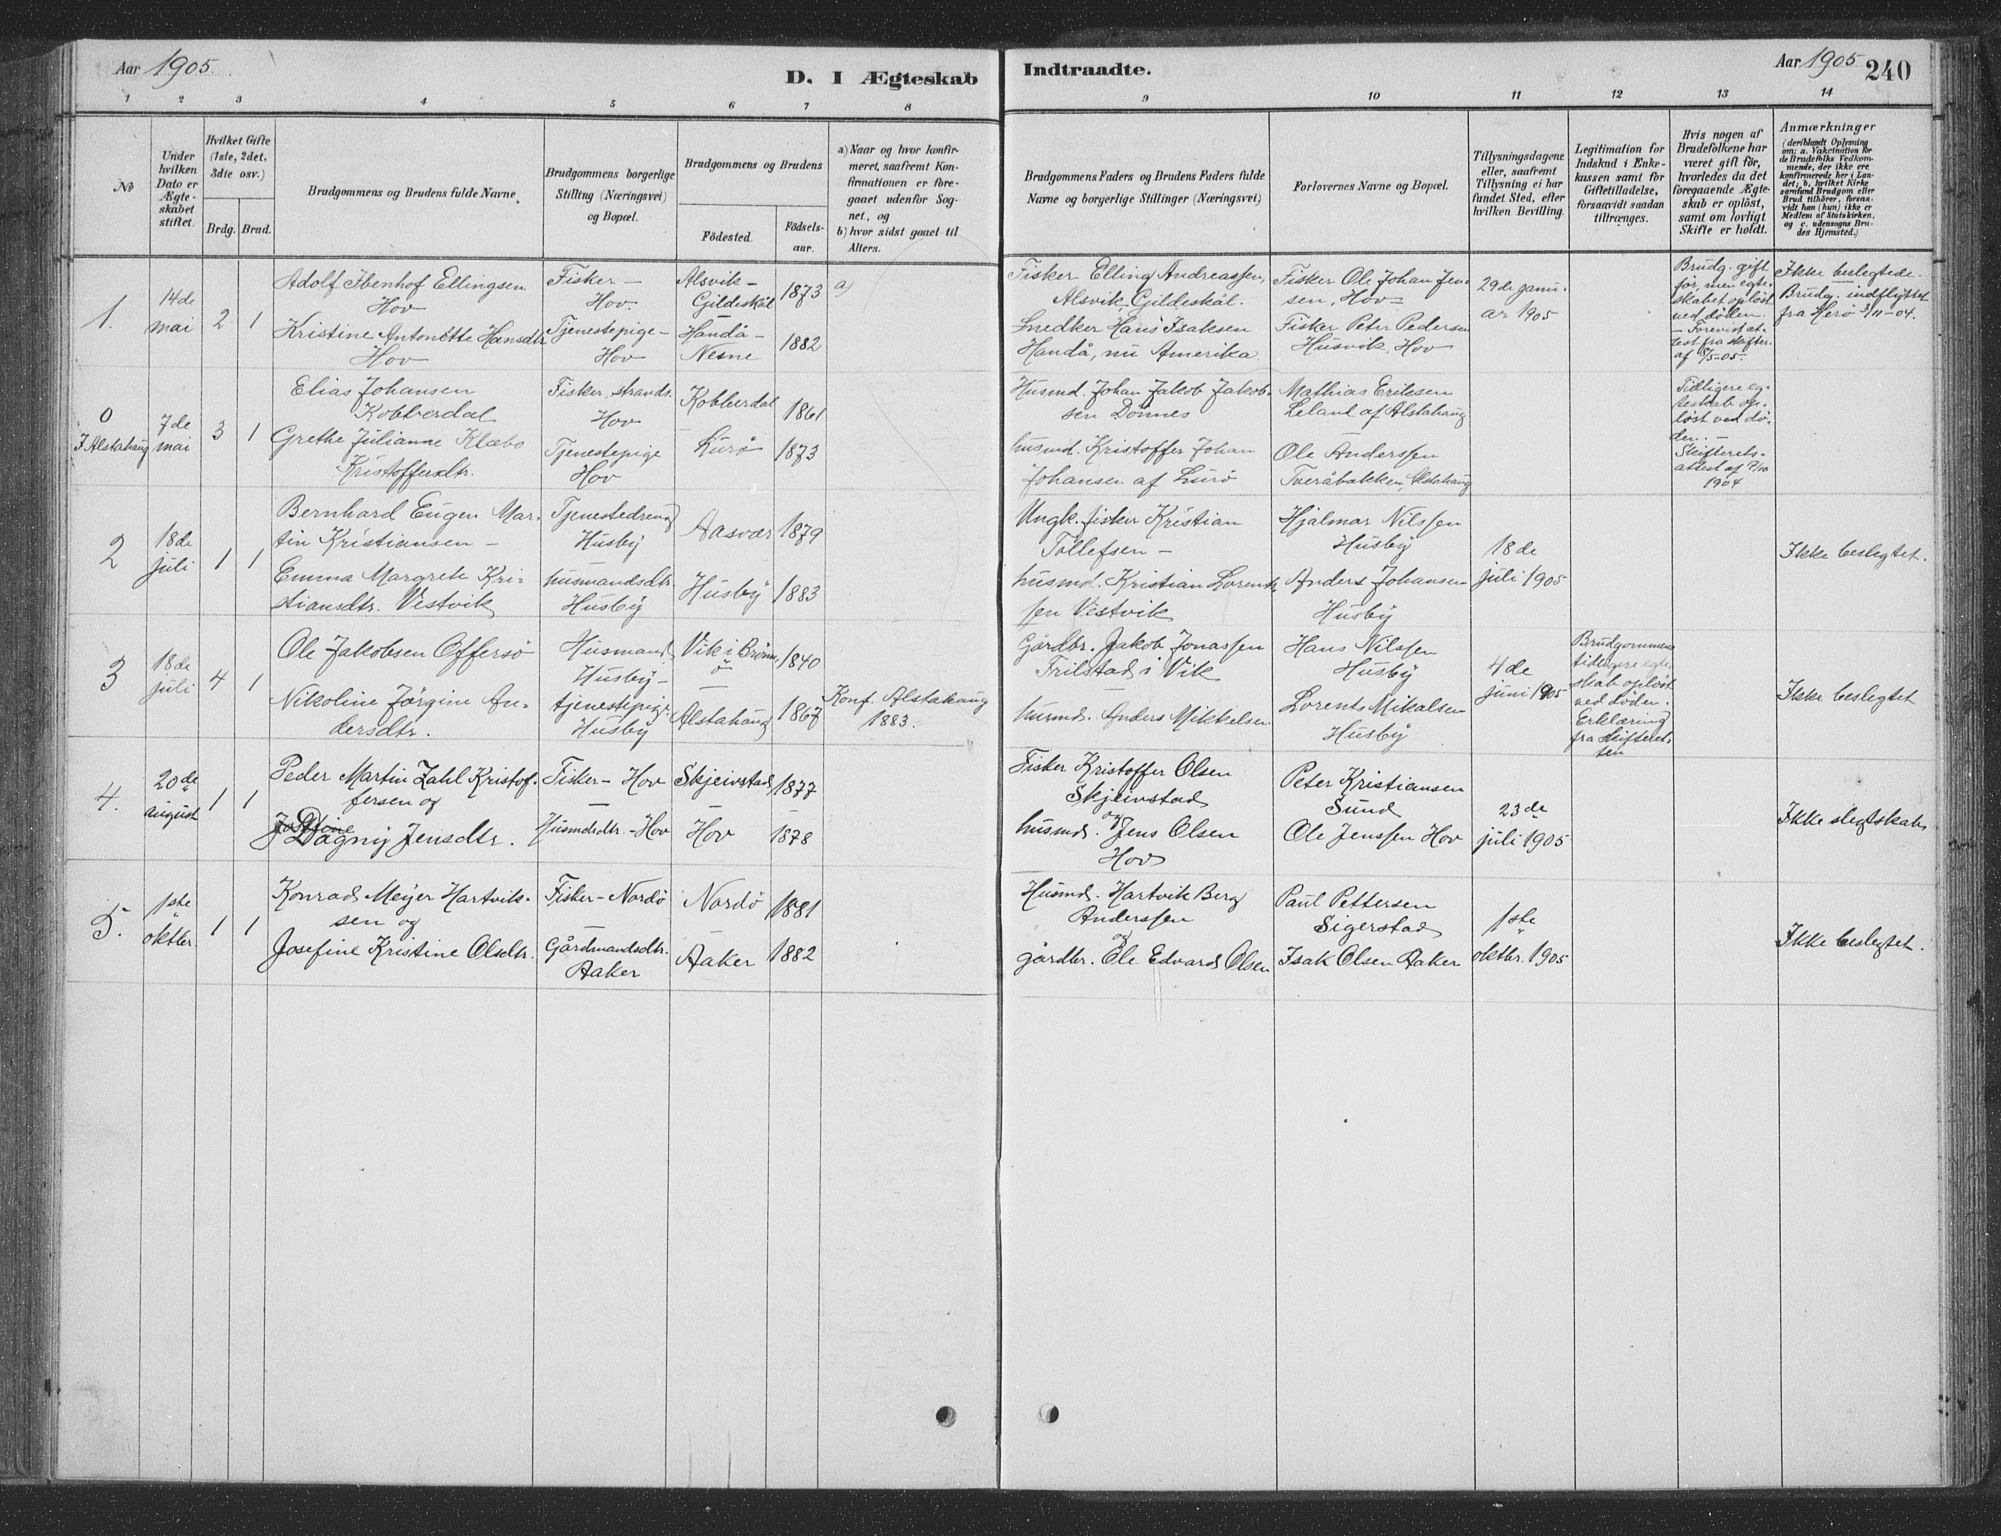 Aar 1905.
D. I Ægteskab
Indtraadte.
Aar 1905
240
1 2 3 4 5 6 7 8
9 10 11 12 13 14
No
Under hvilken Dato er Ægte-skabet stiftet.
Hvilket Gifte (1ste, 2det, 3die osv.)
Brdg. Brud.
Brudgommens og Brudens fulde Navne.
Brudgommens borgerlige Stilling (Næringsvei) og Bopæl.
Brudgommens og Brudens
Fødested.
Fødsels-aar.
a) Naar og hvor konfir-meret, saafremt Kon-firmationen er fore-gaaet udenfor Sog-net, og
b) hvor sidst gaaet til Alters.
Brudgommens Faders og Brudens Faders fulde Navne og borgerlige Stillinger (Næringsvei)
Forlovernes Navne og Bopæl.
Tillysningsdagene eller, saafremt Tillysning ei har fundet Sted, efter hvilken Bevilling.
Legitimation for Indskud i Enke-kassen samt for Giftetilladelse, forsaavidt saadan tiltrænges.
Hvis nogen af Brudefolkene har været gift før, hvorledes da det foregaaende Ægte-skab er opløst, samt om lovligt Skifte er holdt.
Anmærkninger (deriblandt Oplysning om: a. Vaksination for de Brudefolks Vedkom-mende, der ikke ere konfirmerede her i Lan-det, b. hvilket Kirke-samfund Brudgom eller Brud tilhører, forsaa-vidt han (hun) ikke er Medlem af Statskirken, og c. udensogns Bru-des Hjemsted.)
1.
14de
mai
2 1
Adolf Ibenhof Ellingsen
Hov
Kristine Antonette Hansdtr
Hov
Fisker –
Hov.
Tjenestepige –
Hov
Alsvik –
Gildeskål
Handå –
Nesne
1873
1882
a)
Fisker Elling Andreassen,
Alsvik, Gildeskål.
Snedker Hans Isaksen
Handå, nu Amerika.
Fisker Ole Johan Jen-
sen, Hov
Fisker Peter Pedersen
Husvik, Hov
29de janu-
ar 1905
Brudg. gift
før, men egte-
skabet opløst
ved døden.
– Forevist at-
test fra skifter.
af 8/5-05.
Ikke beslegtede.
Brudg. indflyttet
fra Herø 3/11-04.
0
I Alstahaug
7de
mai
3 1
Elias Johansen
Kobberdal
Grethe Julianne Klæbo
Kristoffersdtr.
Fisker, strands.
Hov
Tjenestepige
Hov
Kobberdal
Lurø
1861
1873
Husmd. Johan Jakob Jakob-
sen Dønnes
husmd. Kristoffer Johan
Johansen af Lurø
Mathias Eriksen
Leland af Alstahaug
Ole Anderssen
Tveråbakken, Alstahaug
Tidligere eg-
teskab op-
løst ved dø-
den. –
Skifterets-
attest af 7/10
1904
2
18de
juli
1 1
Bernhard Eugen Mar-
tin Kristiansen –
Emma Margrete Kri-
stiansdtr. Vestvik
Tjenestedreng
Husby
husmandsdtr.
Husby
Aasvær
Husby
1879
1883
Ungk. fisker Kristian
Tollefsen –
husmd. Kristian Lorents
sen Vestvik
Hjalmar Nilssen
Husby
Anders Johansen
Husby
18de
juli 1905
Ikke beslegtet.
3
18de
juli
4 1
Ole Jakobsen Offersø
Nikoline Jørgine An-
dersdtr.
Husmand
Husby –
tjenestepige
Husby
Vik i Brønn-
ø
Alstahaug
1840
1867
Konf. Alstahaug
1883.
Gårdbr. Jakob Jonassen
Trilstad i Vik
husmd. Anders Mikkelsen
Hans Nilssen
Husby
Lorents Mikalsen
Husby
4de
juni 1905
Brudgommens
tidligere egte-
skab opløst
ved døden.
Erklæring
fra skifteret-
ten
Ikke beslegtet
4.
20de
august
1 1
Peder Martin Zahl Kristof-
fersen og
Josefine
Dagny Jensdtr.
Fisker – Hov
Husmdsdtr. – Hov
Skjeivstad
Hov
1877
1878
Fisker Kristoffer Olsen
Skjeivstad
og
husmd. Jens Olsen
Hov
Peter Kristiansen
Sund
Ole Jenssen Hov
23de
juli 1905
Ikke slegtskab
5.
1ste
oktbr.
1 1
Konrad Meijer Hartvik-
sen og
Josefine Kristine Olsdtr.
Fisker – Nordø
Gårdmandsdtr.
Aaker
Nordø
Aaker
1881
1882
Husmd. Hartvik Berg
Anderssen
og
gårdbr. Ole Edvard Olsen
Paul Pettersen
Sigerstad
Isak Olsen Aaker
1ste
oktbr. 1905
Ikke beslegtet.